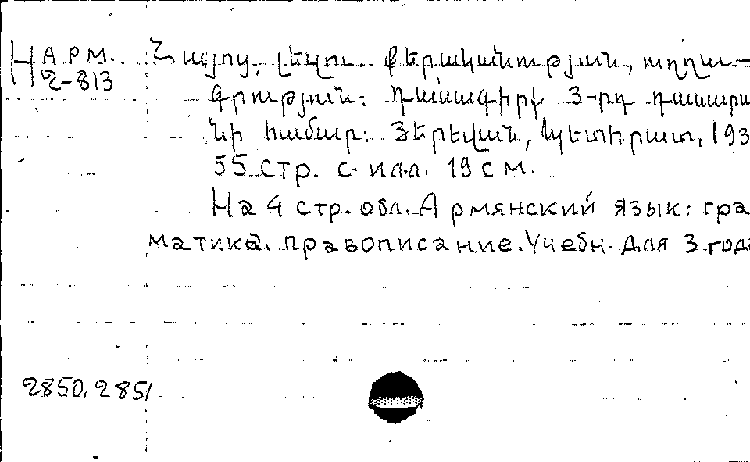 Н АРМ. 2-813
Հայոց լեզու. քերականություն, ուղղա-
գրություն: Դասագիրք 3-րդ դասարա
նի համար: Յերեվան, Պետհրատ, 193
55 стр. с илл. 19 см.
На 4 стр. обл. Армянский язык: гра
матика. правописание. Учебн. для 3 год
2850, 2851